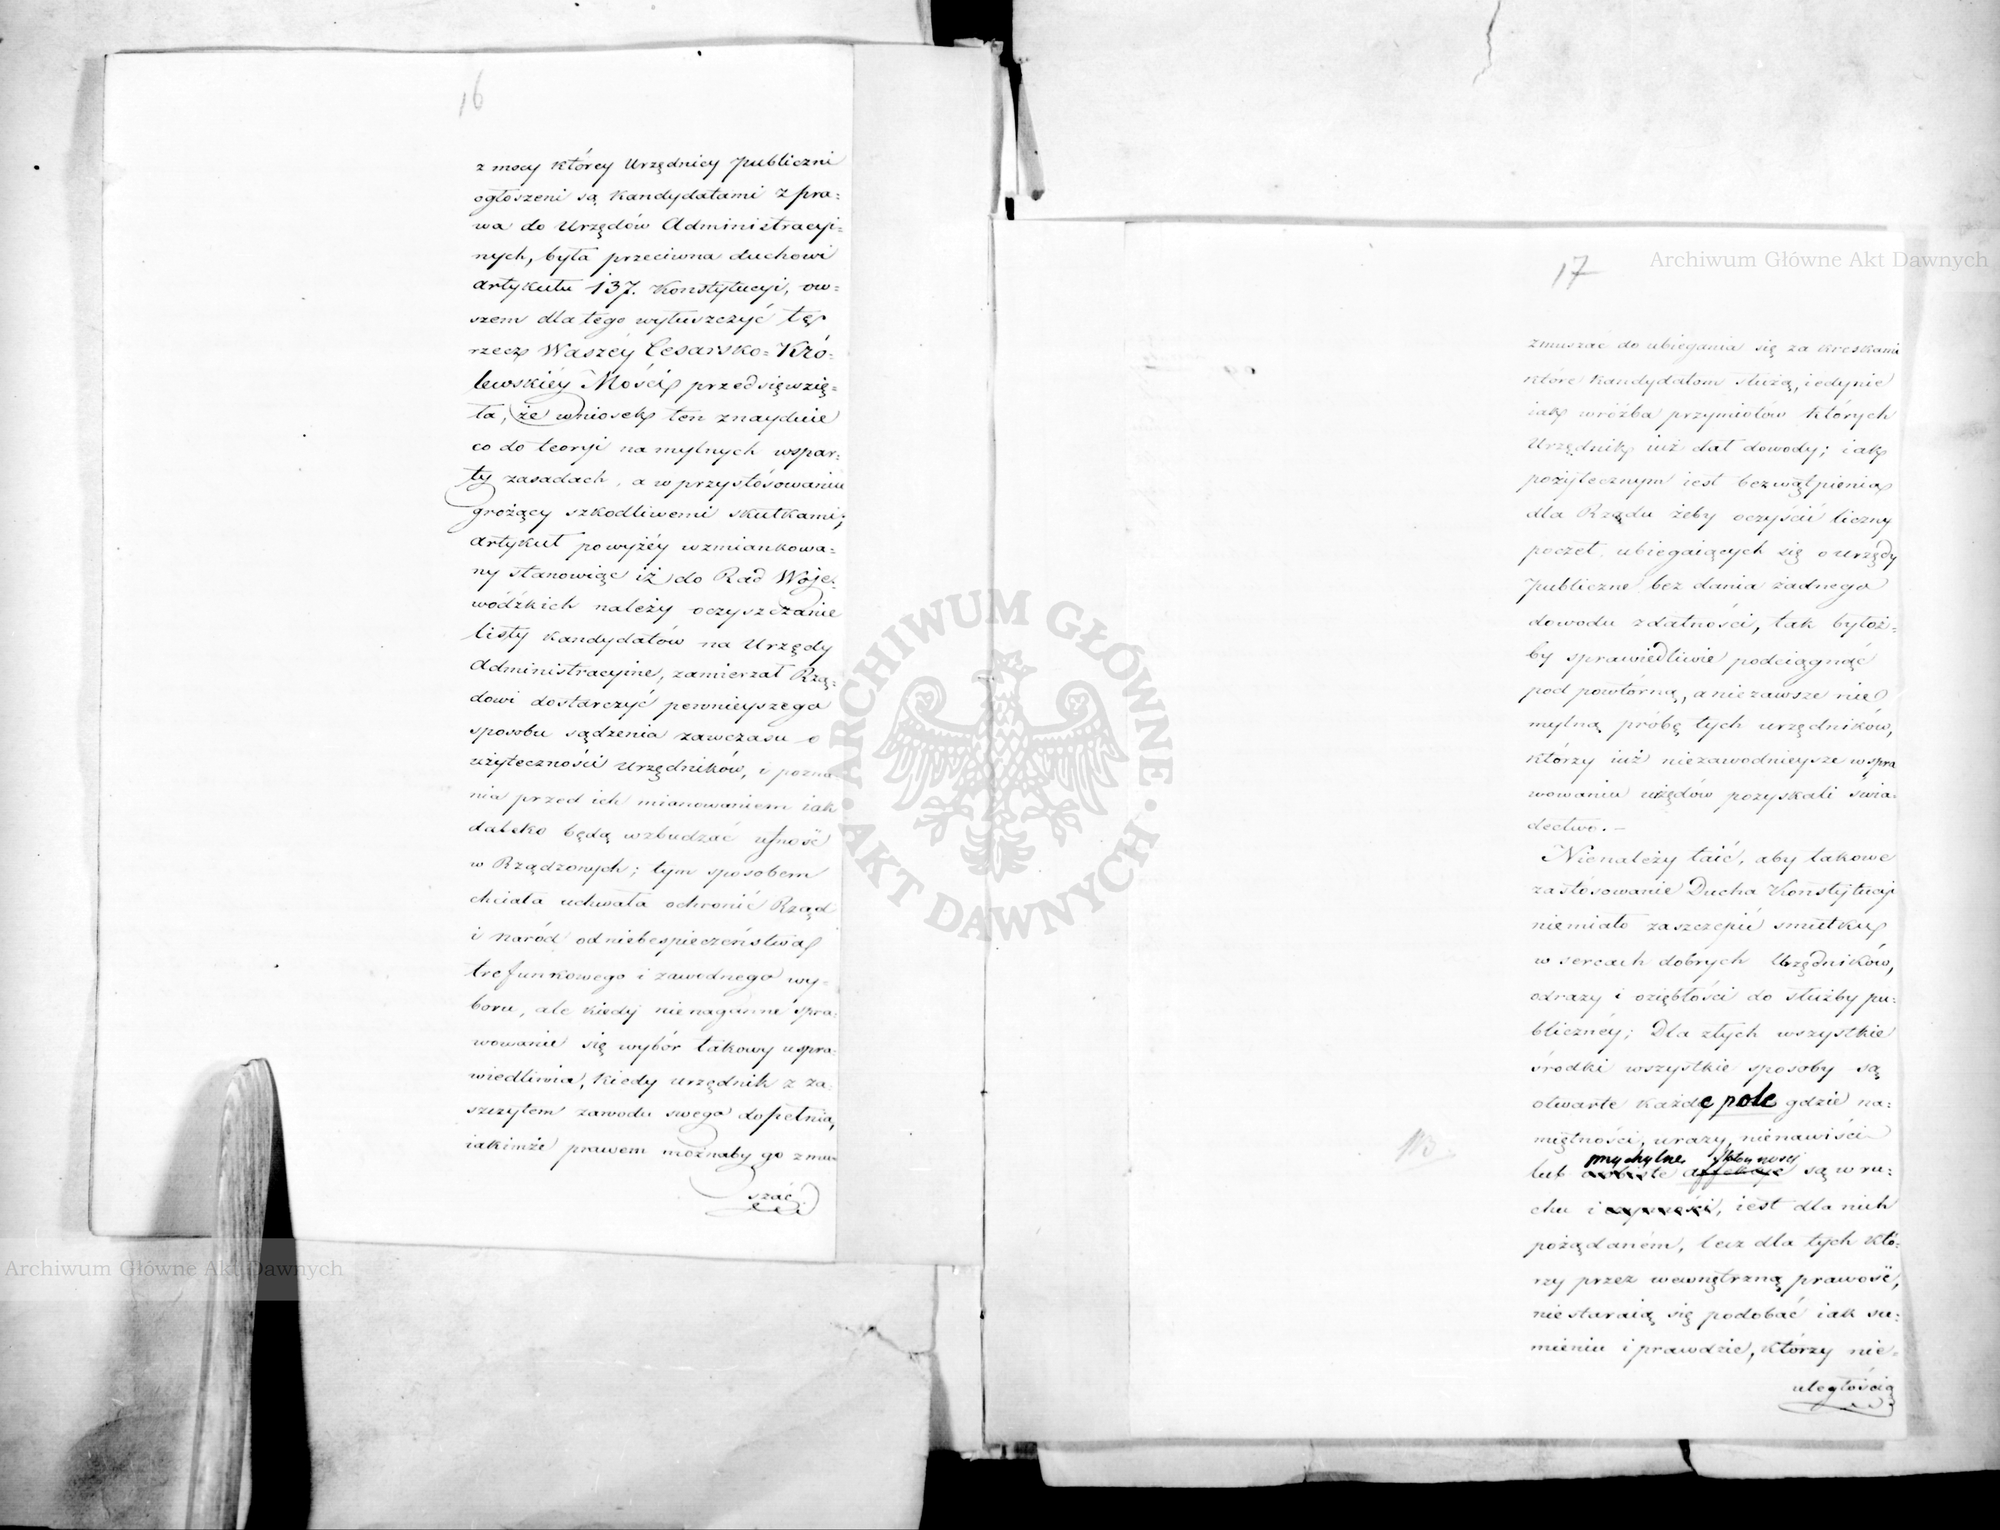 16
z mocy którey Urzędnicy Publiczni
ogłoszeni są Kandydatami z pra-
wa do Urzędów Administracyi-
nych, była przeciwna duchowi
artykułu 137. Konstytucyi, ow-
szem dla tego wyłuszczyć tę
rzecz Waszéy Cesarsko-Kró-
lewskiéy Mości przedsięwzię-
ła, że wniosek ten znayduie
co do teoryi na mylnych wspar-
ty zasadach, a w przystósowaniu
grożący szkodliwemi skutkami;
artykuł powyżéy wzmiankowa-
ny stanowiąc iż do Rad Woje-
wódzkich należy oczyszczanie
listy kandydatów na Urzędy
Administracyine, zamierzał Rzą-
dowi dostarczyć pewnieyszego
sposobu sądzenia zawczasu o
użyteczności Urzędników, i pozna
nia przed ich mianowaniem iak
daleko będą wzbudzać ufność
w Rządzonych; tym sposobem
chciała uchwała ochronić Rząd
i Naród od niebespieczeństwa
trefunkowego i zawodnego wy-
boru, ale kiedy nienaganne spra-
wowanie się wybór takowy uspra-
wiedliwia, kiedy urzędnik z za-
szczytem zawodu swego dopełnia,
iakimże prawem możnaby go zmu-
szać
17
zmuszać do ubiegania się za kreskami
które kandydatom służą, iedynie
iak wróżba przymiotów których
Urzędnik iuż dał dowody; iak
pożytecznym iest bezwątpienia
dla Rządu żeby oczyścić liczny
poczet ubiegaiących się o urzędy
Publiczne bez dania żadnego
dowodu zdatności, tak byłoż-
by sprawiedliwie podciągnąć
pod powtórną, a niezawsze nie
mylną próbę tych urzędników,
którzy iuż niezawodnieysze w spra
wowaniu urzędów pozyskali świa-
dectwo.–
Nienależy taić, aby takowe
zastósowanie Ducha Konstytucyi
niemiało zaszczepić smutku
w sercach dobrych Urzędników,
odrazy i oziębłości do służby pu-
bliczney; Dla złych wszystkie
środki wszystkie sposoby są
otwarte każde pole gdzie na-
miętności, urazy, nienawiści
przychylne skłonności
lub osobiste affekcye są w ru-
chu i czynności, iest dla nich
pożądaném, lecz dla tych któ-
rzy przez wewnętrzną prawość,
niestaraią się podobać iak su-
mieniu i prawdzie, którzy nie-
uległością
Archiwum Główne Akt Dawnych
Archiwum Główne Akt Dawnych
ARCHIWUM GŁÓWNE
AKT DAWNYCH